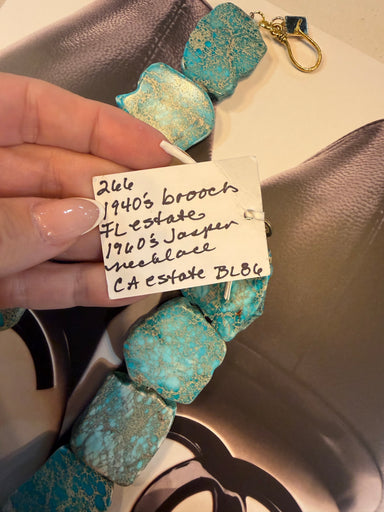 266
1940's brooch
FL estate
1960's Jasper
necklace
CA estate BL86